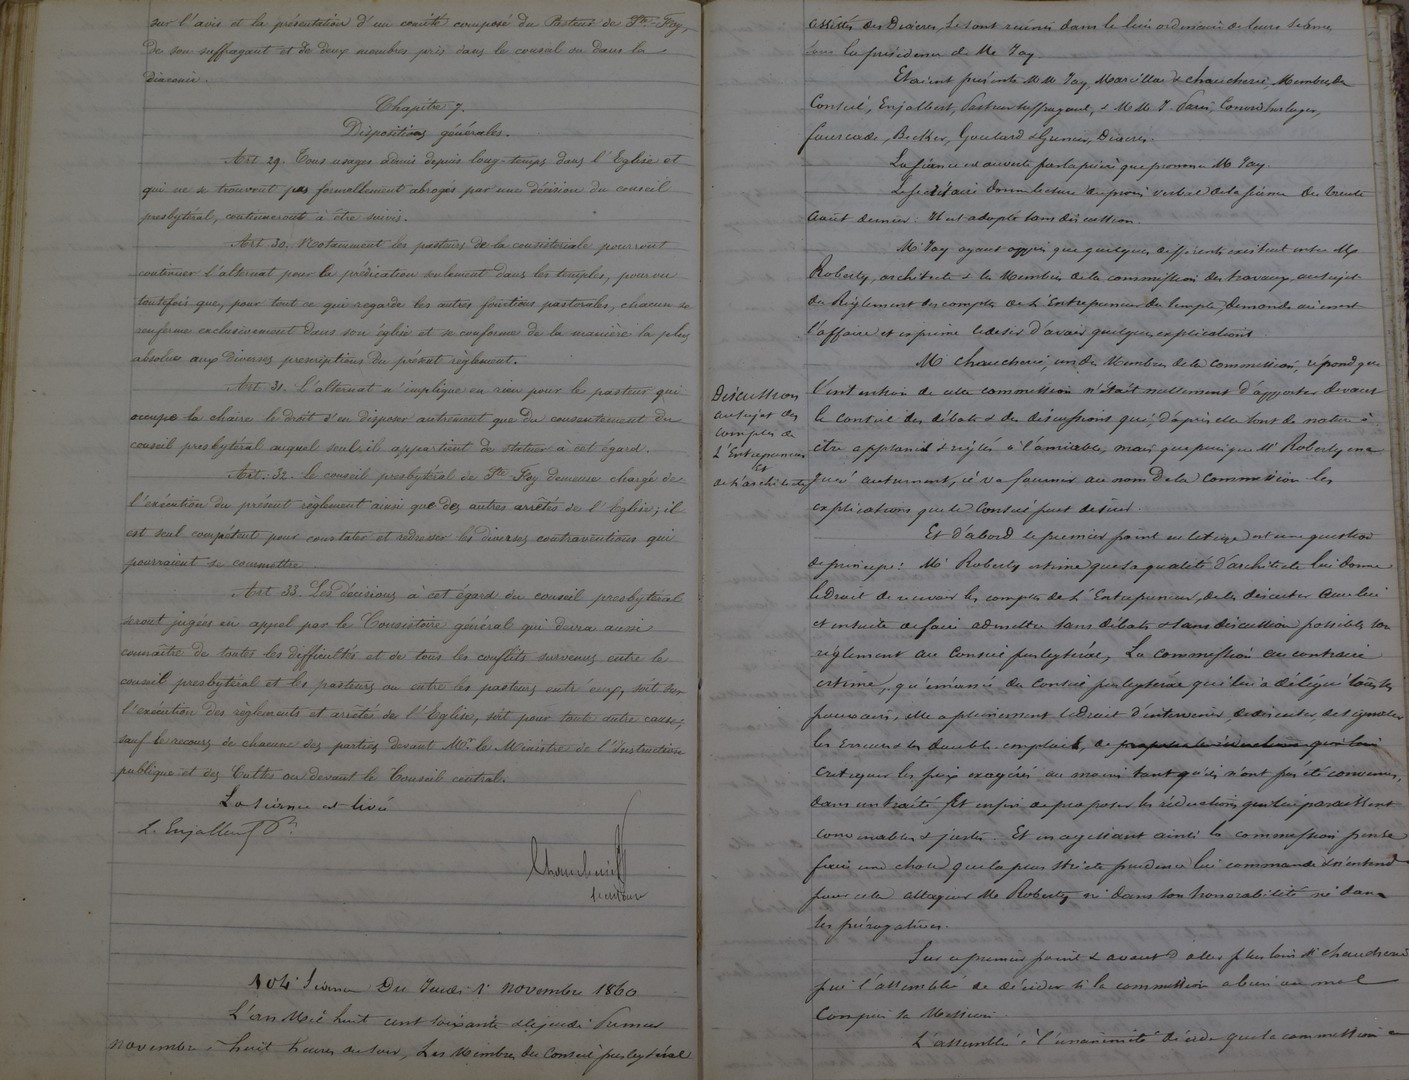 sur l'avis et la présentation d'un comité composé du Pasteur de Ste-Foy,
de son suffragant et de deux membres pris dans le conseil ou dans la
diaconie.
Chapitre 7.
Dispositions générales.
Art 29. Tous usages admis depuis long-temps dans l'Eglise et
qui ne se trouvent pas formellement abrogés par une décision du conseil
presbytéral, continueront à être suivis.
Art 30. Notamment les pasteurs de la consistoriale pourront
continuer l'alternat pour la prédication seulement dans les temples, pourvu
toutefois que, pour tout ce qui regarde les autres fonctions pastorales, chacun se
renferme exclusivement dans son église et se conforme de la manière la plus
absolue aux diverses prescriptions du présent règlement.
Art 31. L'alternat n'implique en rien pour le pasteur qui
occupe la chaire le droit d'en disposer autrement que du consentement du
conseil presbytéral auquel seul il appartient de statuer à cet égard.
Art. 32. Le conseil presbytéral de Ste Foy demeure chargé de
l'exécution du présent règlement ainsi que des autres arrêtés de l'Eglise; il
est seul compétent pour constater et redresser les diverses contraventions qui
pourraient se commettre.
Art 33. Les décisions à cet égard du conseil presbytéral
seront jugées en appel par le Consistoire général qui devra aussi
connaître de toutes les difficultés et de tous les conflits survenus entre le
conseil presbytéral et les pasteurs ou entre les pasteurs entr'eux, soit sur
l'exécution des règlements et arrêtés de l'Eglise, soit pour toute autre cause,
sauf le recours de chacune des parties devant Mr. le Ministre de l'Instruction
publique et des Cultes ou devant le Conseil central.
La séance est levée
L. Enjalbert
Chaucherie
secrétaire
104e Séance Du Jeudi 1r novembre 1860
L'an Mil huit cent soixante et le jeudi Premier
novembre à huit heures du soir, Les Membres du Conseil presbytéral
assistés des Diacres, se sont réunis dans le lieu ordinaire de leurs séances
sous la présidence de Mr Jay.
Etaient présents MM Jay, Marcillac & chaucherie, Membres du
Conseil, Enjalbert, Pasteur suffragant, & MM
fourcade, Becker, Goulard & Diacres.
La séance est ouverte par la prière que prononce Mr Jay
Le secrétaire donne lecture du procès verbal de la séance du trente
août dernier. Il est adopté sans discussion.
Mr Jay ayant appris que quelques différents existent entre Mr
Roberty, architecte & les Membres de la commission des travaux, au sujet
du Règlement des comptes de l'Entrepreneur du temple,
l'affaire et exprime le désir d'avoir quelques explications.
Mr Chaucherie, un des Membres de la Commission, répond que
l'intention de cette commission n'était nullement d'apporter devant
le Conseil des débats & des discussions qui d'après elle sont de nature à
être applanis & réglés à l'amiable, mais que puisque Mr Roberty en a
jugé autrement, il va fournir au nom De la Commission les
explications que le Conseil peut désirer.
Discussion
au sujet des
comptes de
L'Entrepreneur
Et
de l'architecte
Et d'abord le premier point en litige est une question
de principe: Mr Roberty estime que sa qualité d'architecte lui donne
le Droit de recevoir les comptes de L'Entrepreneur, de les discuter avec lui
et ensuite de faire admettre sans débats & sans discussion possibles son
règlement au Conseil presbytéral, La commission au contraire
estime, qu'émanée du Conseil presbytéral qui lui a délégué tous les
pouvoirs, elle a pleinement le droit d'intervenir, de discuter, de signaler
les Erreurs les doubles emplois, de proposer les réductions que lui
critiquer les prix exagérés au moins tant qu'ils n'ont pas été convenus,
dans un traité Et enfin de proposer les réductions qui lui paraissent
convenables & justes. Et en agissant ainsi la commission pense
faire une chose que la plus stricte prudence lui commande & n'entend
pour cela attaquer Mr Roberty ni dans son honorabilité ni dans
ses prérogatives.
Sur ce premier point & avant d'aller plus loin Mr chaucherie
prie l'assemblée de décider si la commission a bien ou mal
Compris sa Mission.
L'assemblée à l'unanimité décide que la commission a